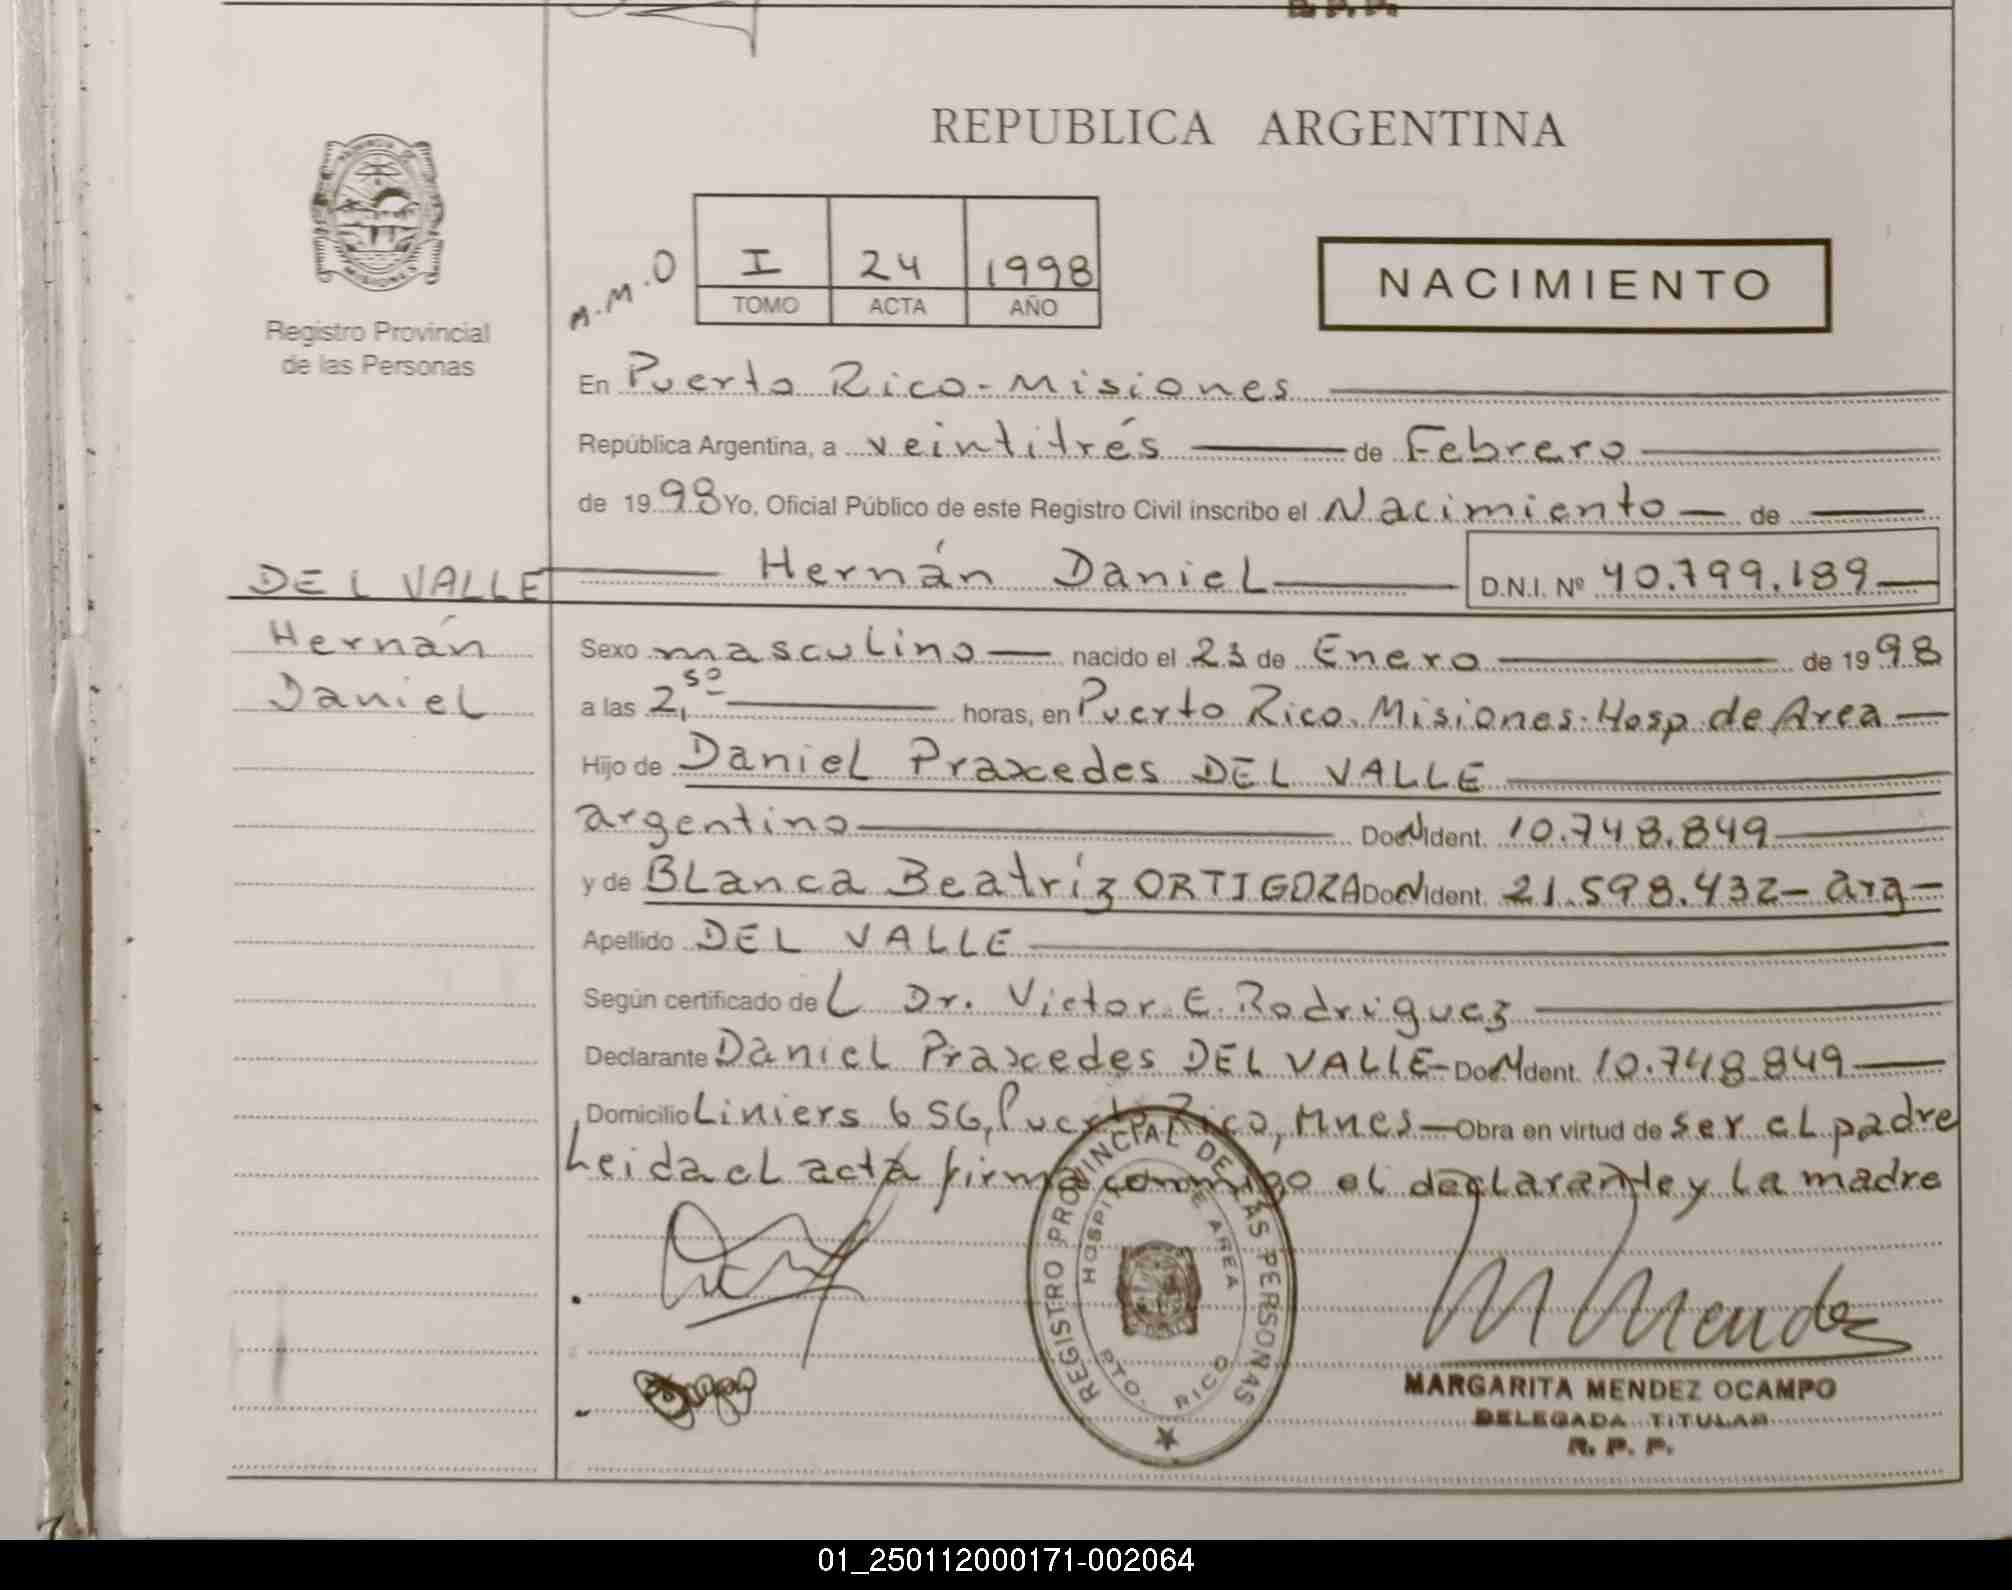 R. P. P.
REPUBLICA ARGENTINA
PROVINCIA DE MISIONES
Registro Provincial
de las Personas
M.M.O
I 24 1998
TOMO ACTA AÑO
NACIMIENTO
En Puerto Rico - Misiones
República Argentina, a veintitrés de Febrero
de 1998 Yo, Oficial Público de este Registro Civil inscribo el Nacimiento de
DEL VALLE Hernán Daniel D.N.I. Nº 40.799.189
Hernán
Daniel
Sexo masculino nacido el 23 de Enero de 1998
a las 2,50 horas, en Puerto Rico. Misiones. Hosp. de Area
Hijo de Daniel Praxcedes DEL VALLE
argentino Doc. N Ident. 10.748.849
y de Blanca Beatríz ORTIGOZA Doc. N Ident. 21.598.432 - arg -
Apellido DEL VALLE
Según certificado del Dr. Victor E. Rodriguez
Declarante Daniel Praxcedes DEL VALLE - Doc. N Ident. 10.748.849
Domicilio Liniers 656, Puerto Rico, Mnes - Obra en virtud de ser el padre
Leida el acta firma conmigo el declarante y la madre
REGISTRO PROVINCIAL DE LAS PERSONAS
HOSPITAL DE AREA
PTO. RICO
M Mendez
MARGARITA MENDEZ OCAMPO
DELEGADA TITULAR
R. P. P.
01_250112000171-002064